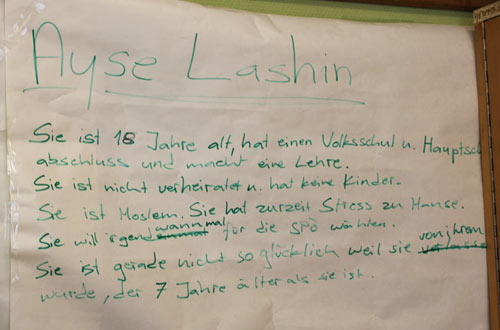 Ayse Lashin
Sie ist 18 Jahre alt, hat einen Volksschul u. Hauptsch
abschluss und macht eine Lehre.
Sie ist nicht verheiratet u. hat keine Kinder.
Sie ist Moslem. Sie hat zurzeit Stress zu Hause.
Sie will irgendwannmal für die SPÖ wählen.
Sie ist gerade nicht so glücklich weil sie von ihrem
wurde, der 7 Jahre älter als sie ist.